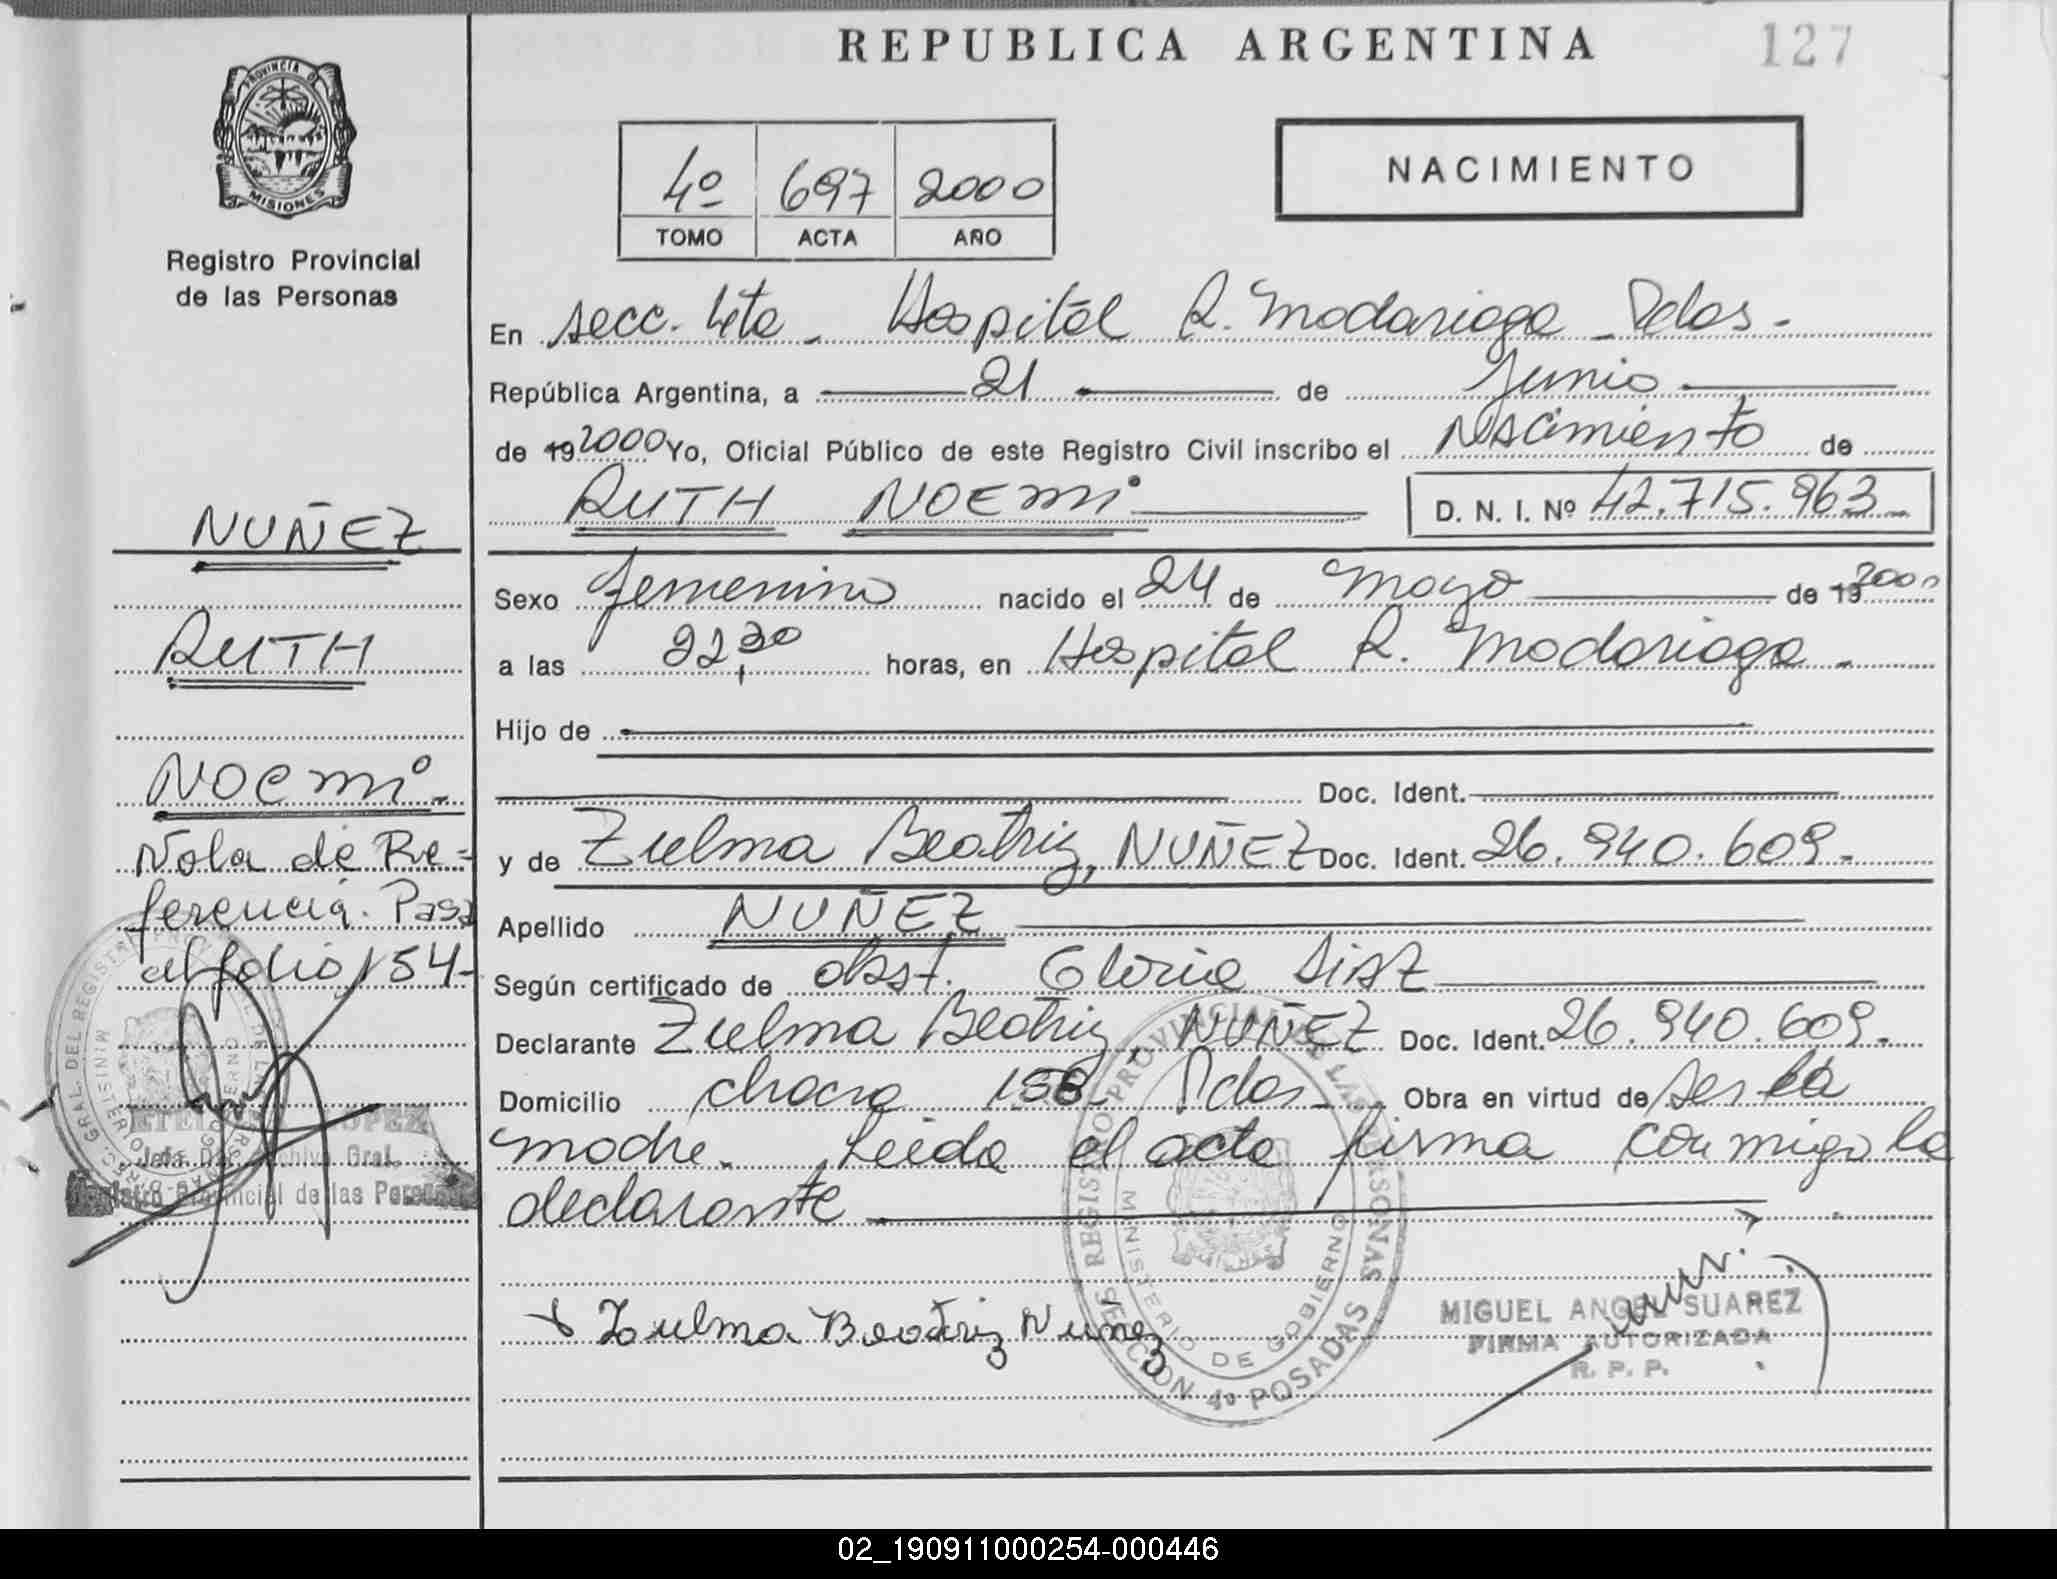 REPUBLICA ARGENTINA
127
PROVINCIA D
MISIONES
Registro Provincial
de las Personas
4º 697 2000
TOMO ACTA AÑO
NACIMIENTO
En secc. 4ta - Hospital R. Madariaga - Pdas -
República Argentina, a 21 de Junio
de 19 2000 Yo, Oficial Público de este Registro Civil inscribo el Nacimiento de
RUTH NOEMI D. N. I. Nº 42.715.963
Sexo femenino nacido el 24 de Mayo de 19 2000
a las 22,30 horas, en Hospital R. Madariaga -
Hijo de
Doc. Ident.
y de Zulma Beatriz, NUÑEZ Doc. Ident. 26.940.609.
Apellido NUÑEZ
Según certificado de obst. Gloria
Declarante Zulma Beatriz, NUÑEZ Doc. Ident. 26.940.609.
Domicilio chacra 158 Pdas - Obra en virtud de ser la
madre. Leída el acta firma conmigo la
declarante
Zulma Beatriz Nuñez
REGISTRO PROVINCIAL DE LAS PERSONAS
MINISTERIO DE GOBIERNO
SECCION 4º POSADAS
MIGUEL ANGEL SUAREZ
FIRMA AUTORIZADA
R. P. P.
NUÑEZ
RUTH
NOEMI -
Nota de Re=
ferencia. Pasa
al folio 154-
Jefa Archivo Gral.
Registro Provincial de las Personas
02_190911000254-000446